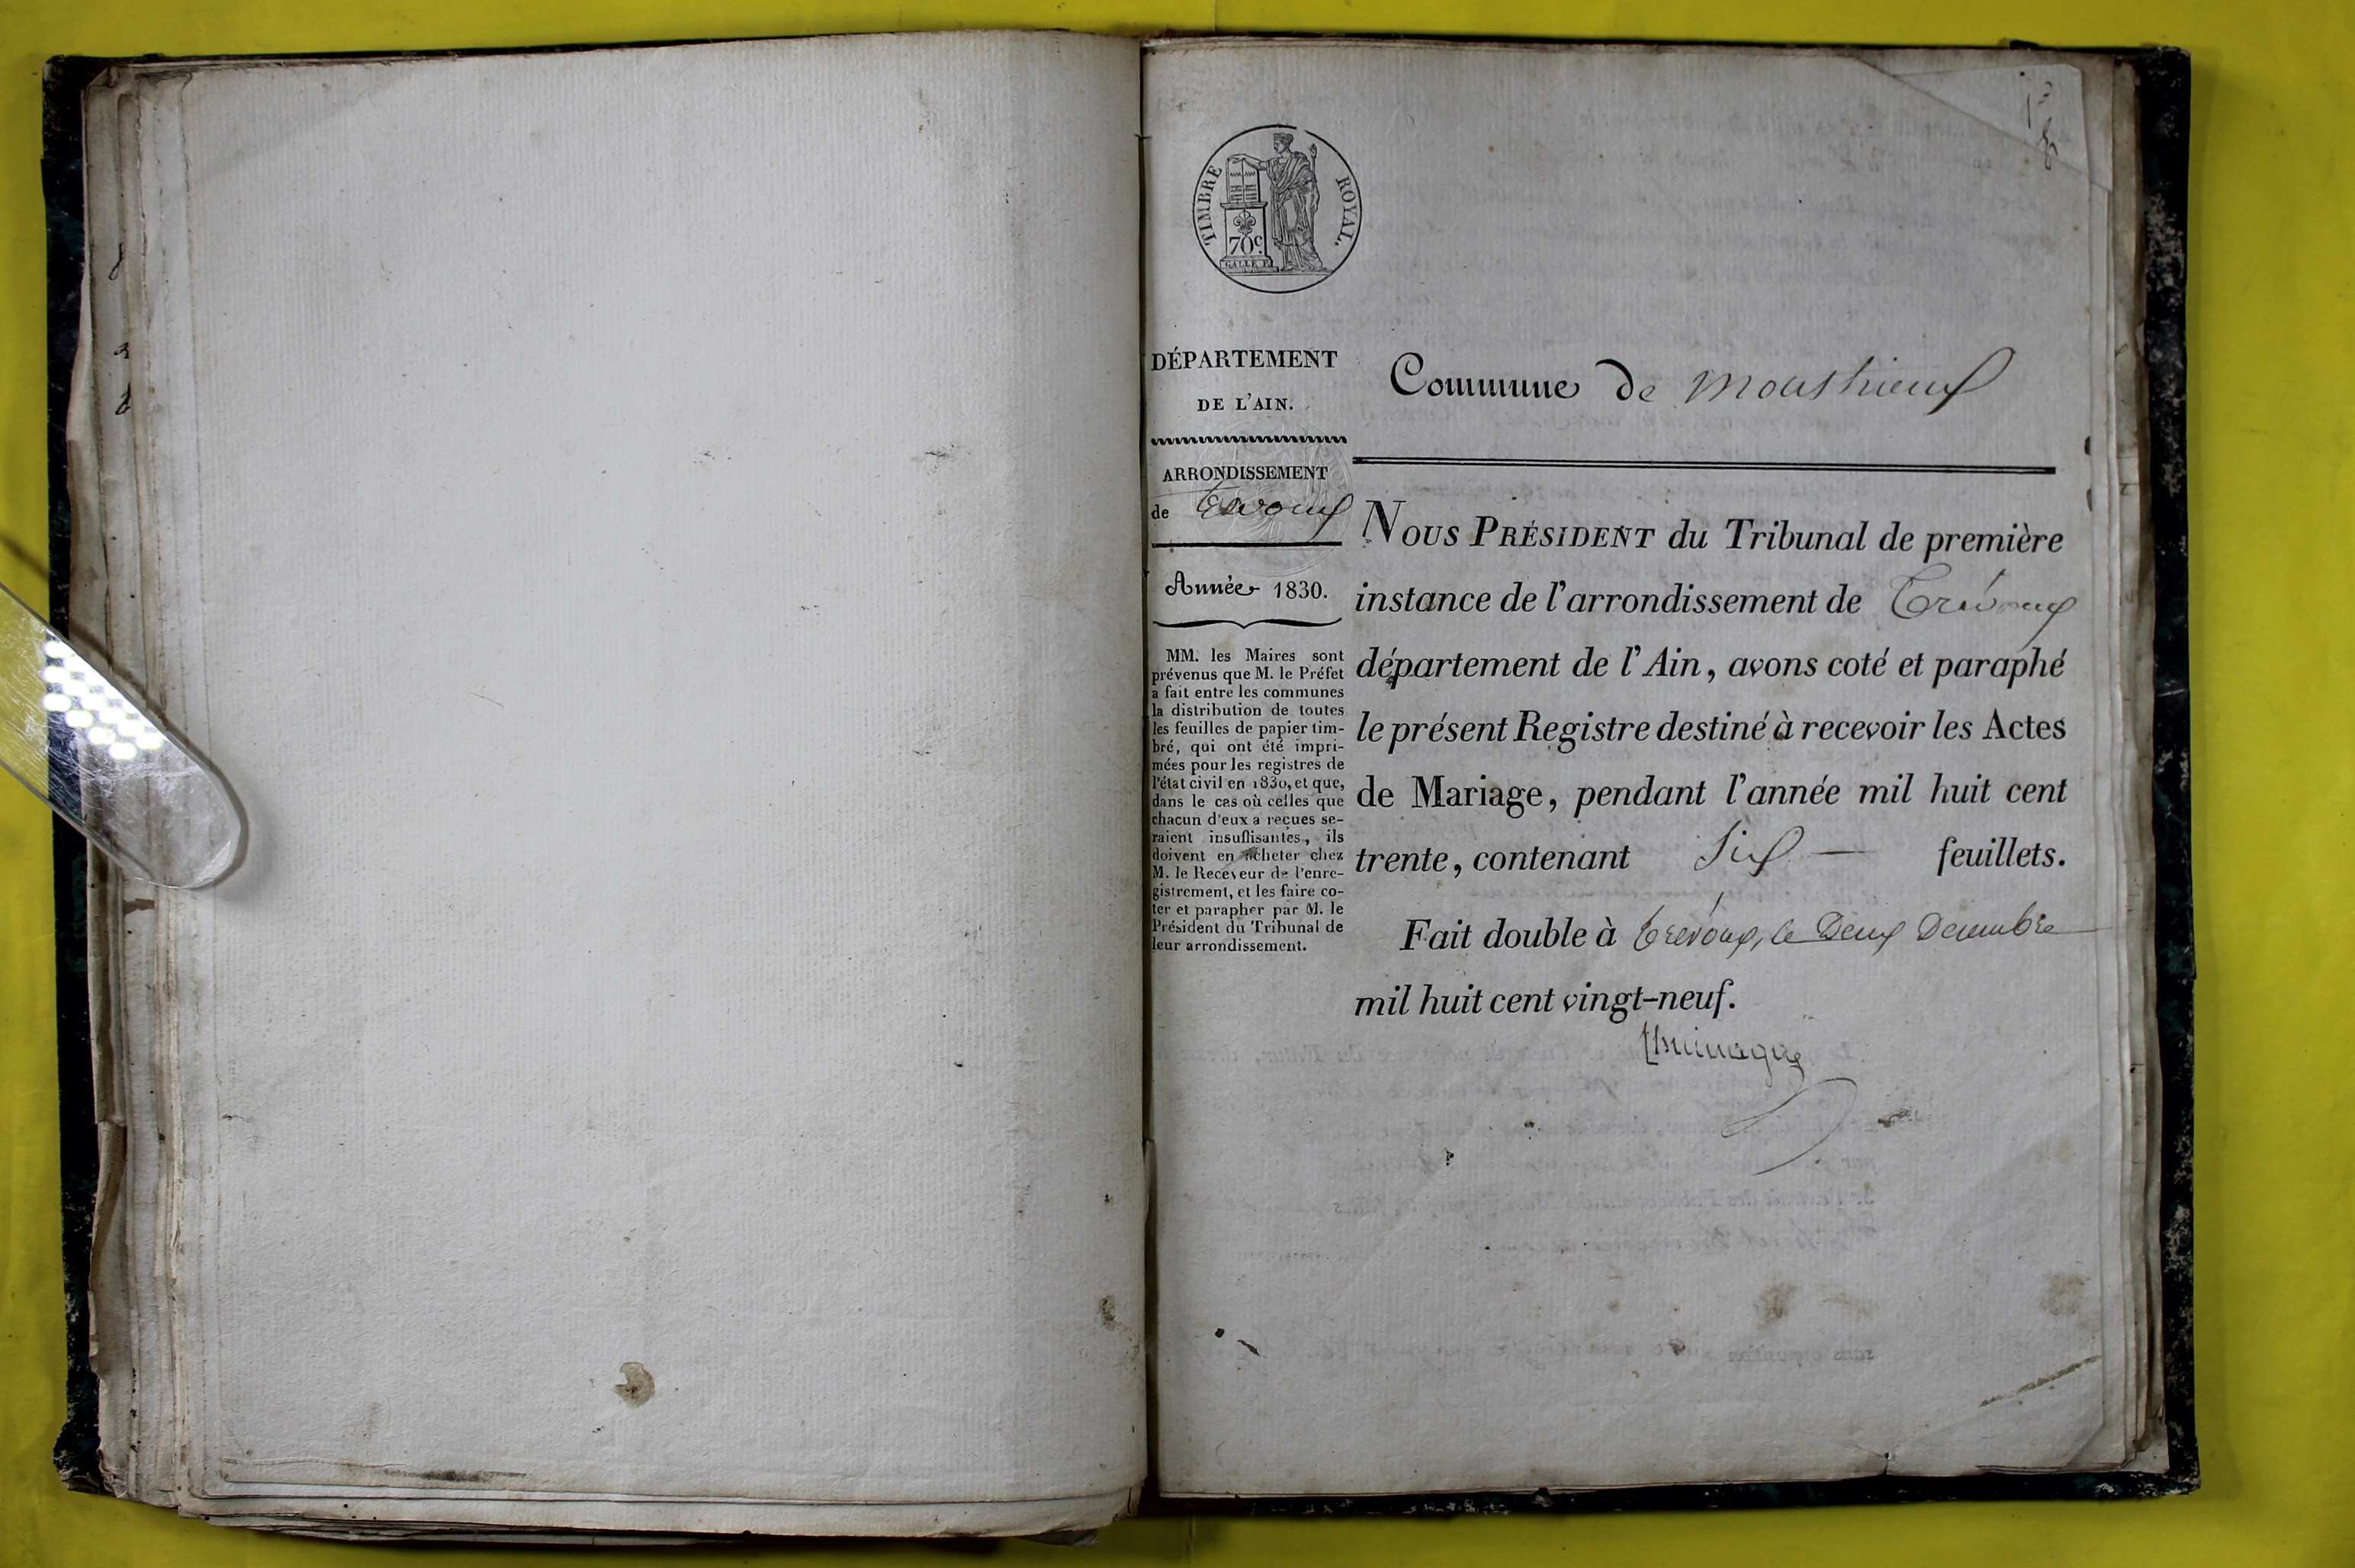 TIMBRE ROYAL.
70c.
GALLE F.
DÉPARTEMENT
DE L'AIN.
Commune de Monthieux
ARRONDISSEMENT
de Trévoux
Année 1830.
MM. les Maires sont
prévenus que M. le Préfet
a fait entre les communes
la distribution de toutes
les feuilles de papier tim-
bré, qui ont été impri-
mées pour les registres de
l'état civil en 1830, et que,
dans le cas où celles que
chacun d'eux a reçues se-
raient insuffisantes, ils
doivent en acheter chez
M. le Receveur de l'enre-
gistrement, et les faire co-
ter et parapher par M. le
Président du Tribunal de
leur arrondissement.
NOUS PRÉSIDENT du Tribunal de première
instance de l'arrondissement de Trévoux
département de l'Ain, avons coté et paraphé
le présent Registre destiné à recevoir les Actes
de Mariage, pendant l'année mil huit cent
trente, contenant Six — feuillets.
Fait double à Trévoux, le Deux Decembre
mil huit cent vingt-neuf.